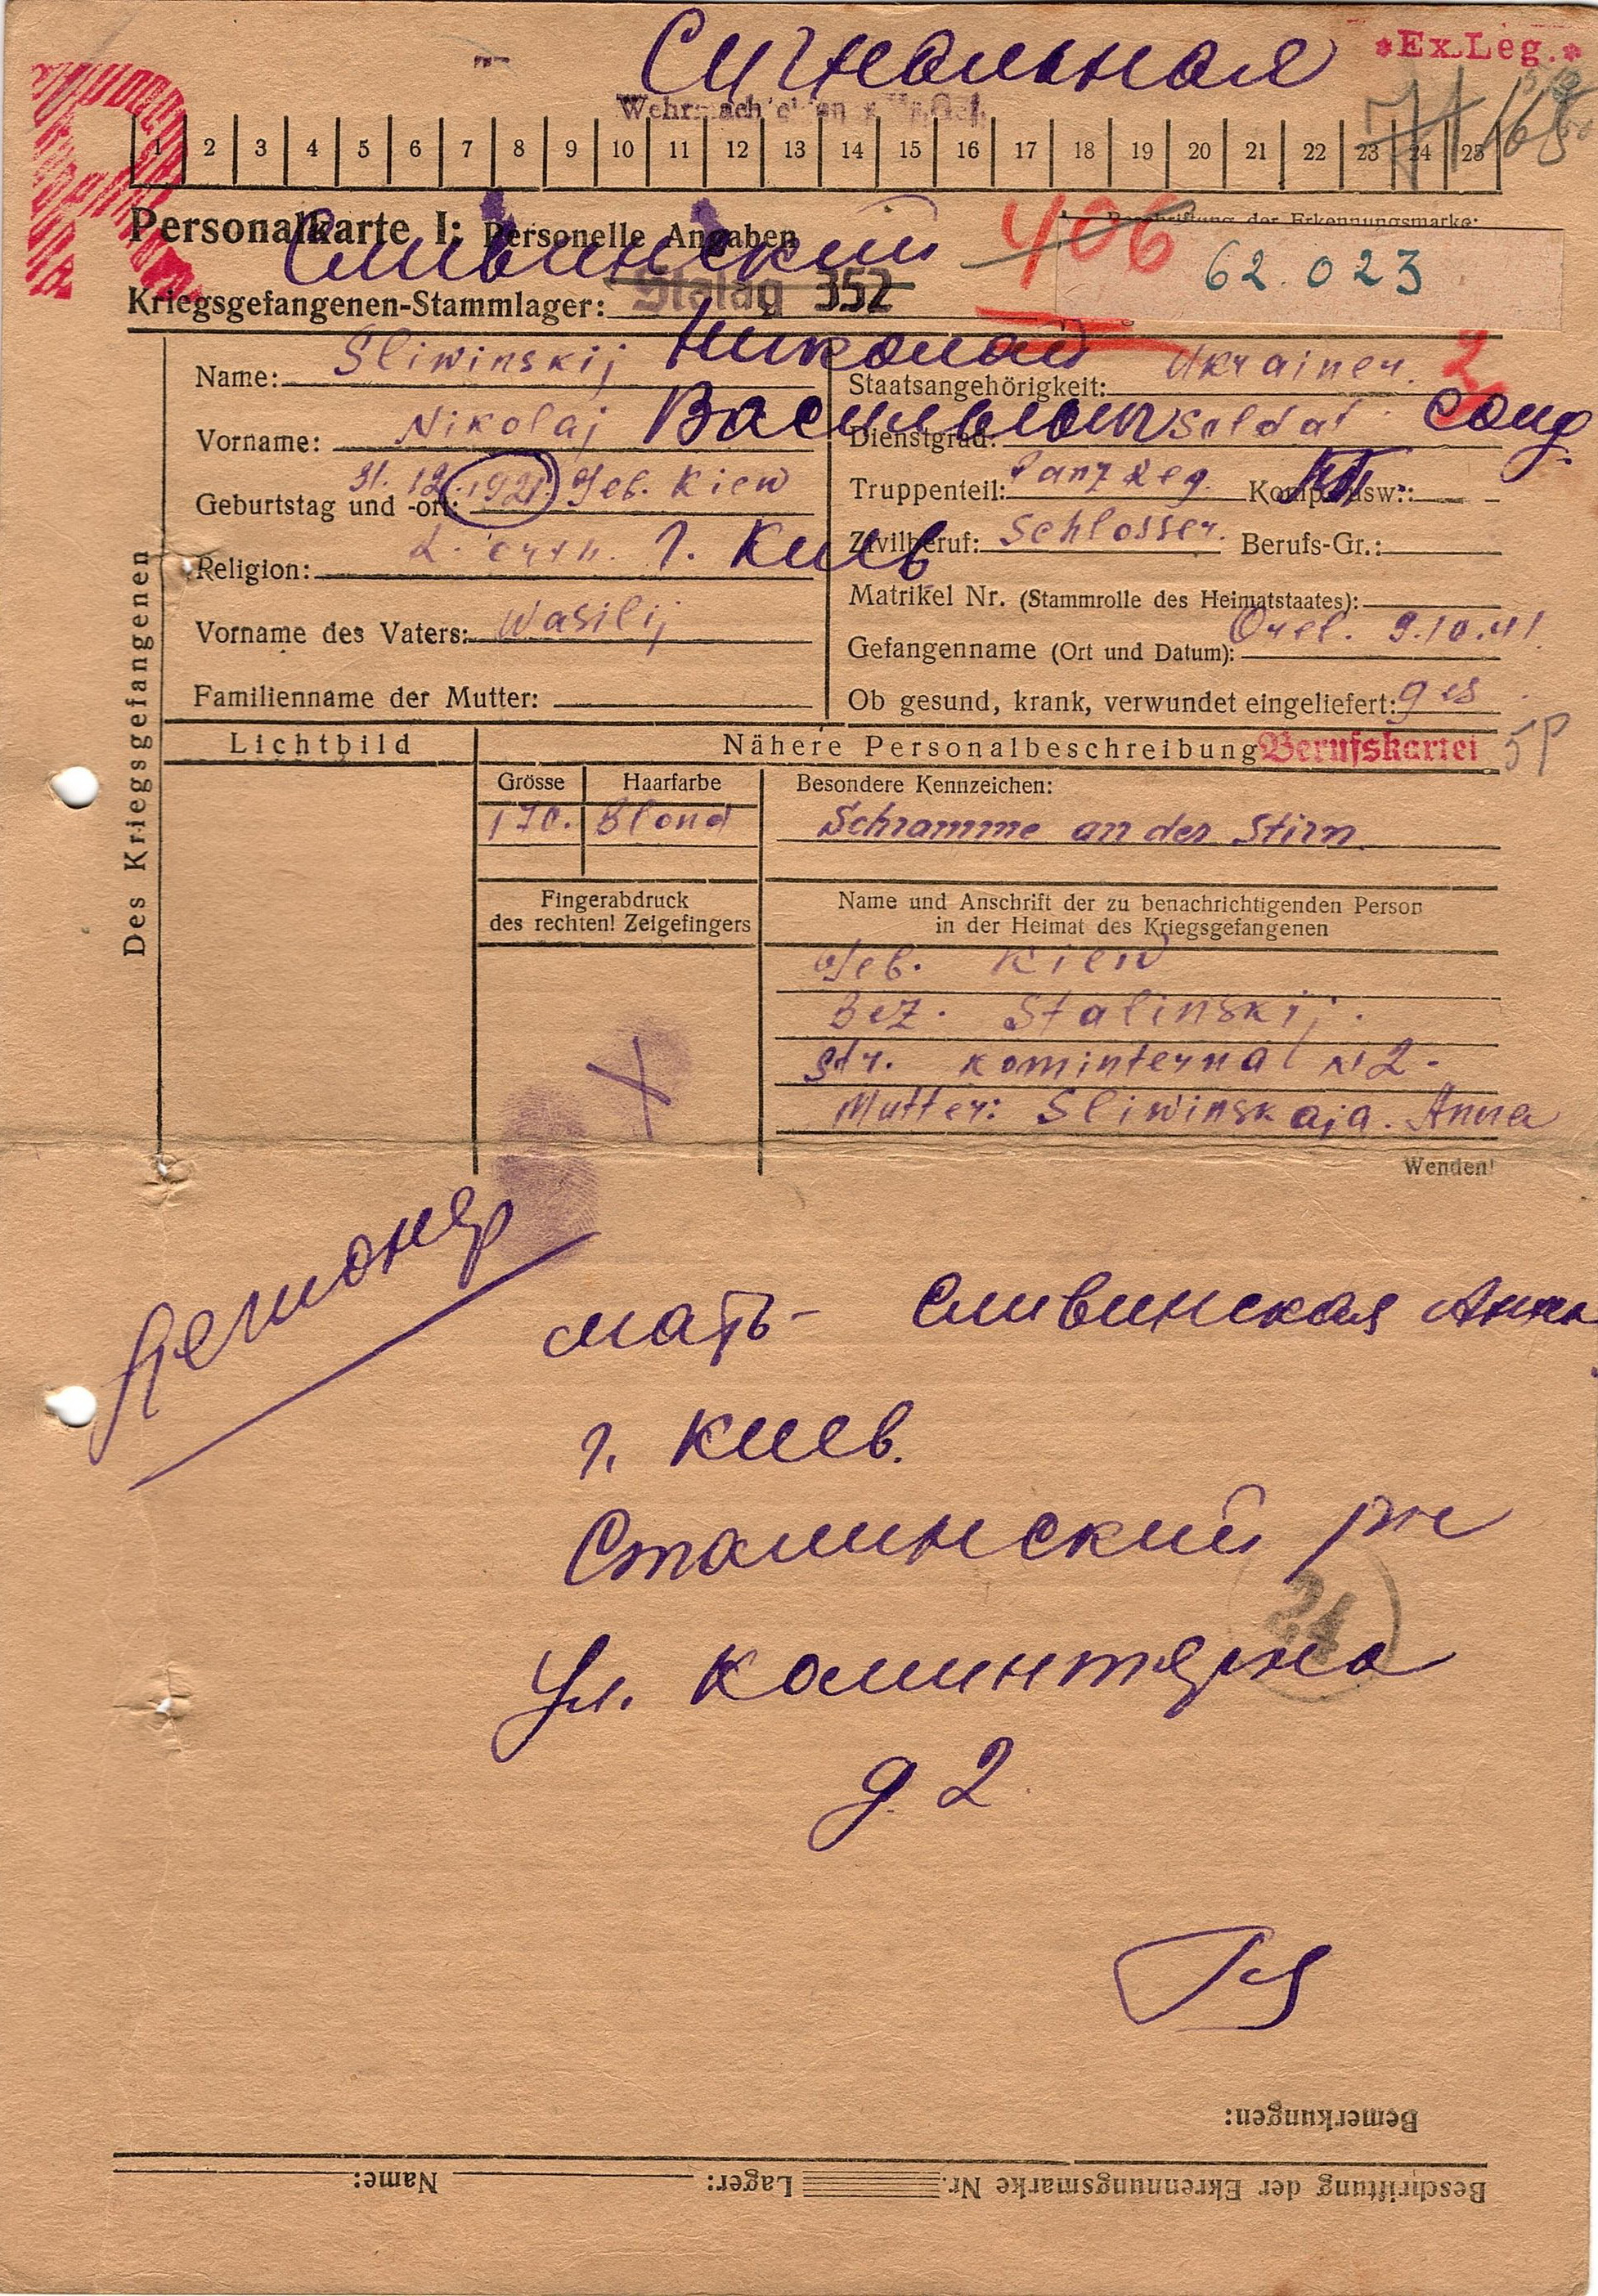 Сигнальная
*Ex.Leg.*
1 2 3 4 5 6 7 8 9 10 11 12 13 14 15 16 17 18 19 20 21 22 23 24 25
Personalkarte I: Personelle Angaben
Beschriftung der Erkennungsmarke:
406
62.023
Сливинский
Kriegsgefangenen-Stammlager: Stalag 352
Des Kriegsgefangenen
Name: Sliwinskij Николай
Vorname: Nikolaj Васильевич
Geburtstag und -ort: 31. 12. 1921. Geb. Kiew
Religion: orth. г. Киев
Vorname des Vaters: Wasilij
Familienname der Mutter:
Staatsangehörigkeit: Ukrainer. 2
Dienstgrad: Soldat солд.
Truppenteil: Panz Reg. Komp. usw.: —
Zivilberuf: Schlosser. Berufs-Gr.:
Matrikel Nr. (Stammrolle des Heimatstaates):
Gefangenname (Ort und Datum): Orel. 9.10.41
Ob gesund, krank, verwundet eingeliefert: ges.
Lichtbild
Nähere Personalbeschreibung Berufskartei
Grösse
Haarfarbe
Besondere Kennzeichen:
170.
Blond
Schramme an der Stirn
Fingerabdruck
des rechten! Zeigefingers
Name und Anschrift der zu benachrichtigenden Person
in der Heimat des Kriegsgefangenen
Geb. Kiew
Bez. Stalinskij.
Str. Kominterna N2.
Mutter: Sliwinskaja. Anna
Wenden!
Легионер
мать - Сливинская Анна
г. Киев.
Сталинский
24
Ул. Коминтерна
д. 2
Bemerkungen:
Beschriftung der Ekrennungsmarke Nr. Lager: Name: